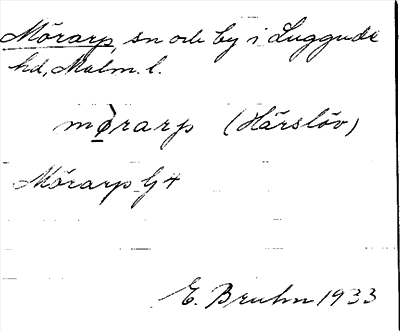 Mörarp, sn och by i Luggude
hd, Malm. l.
mø̀rarp (Härslöv)
Mörarp G 4
E. Bruhn 1933